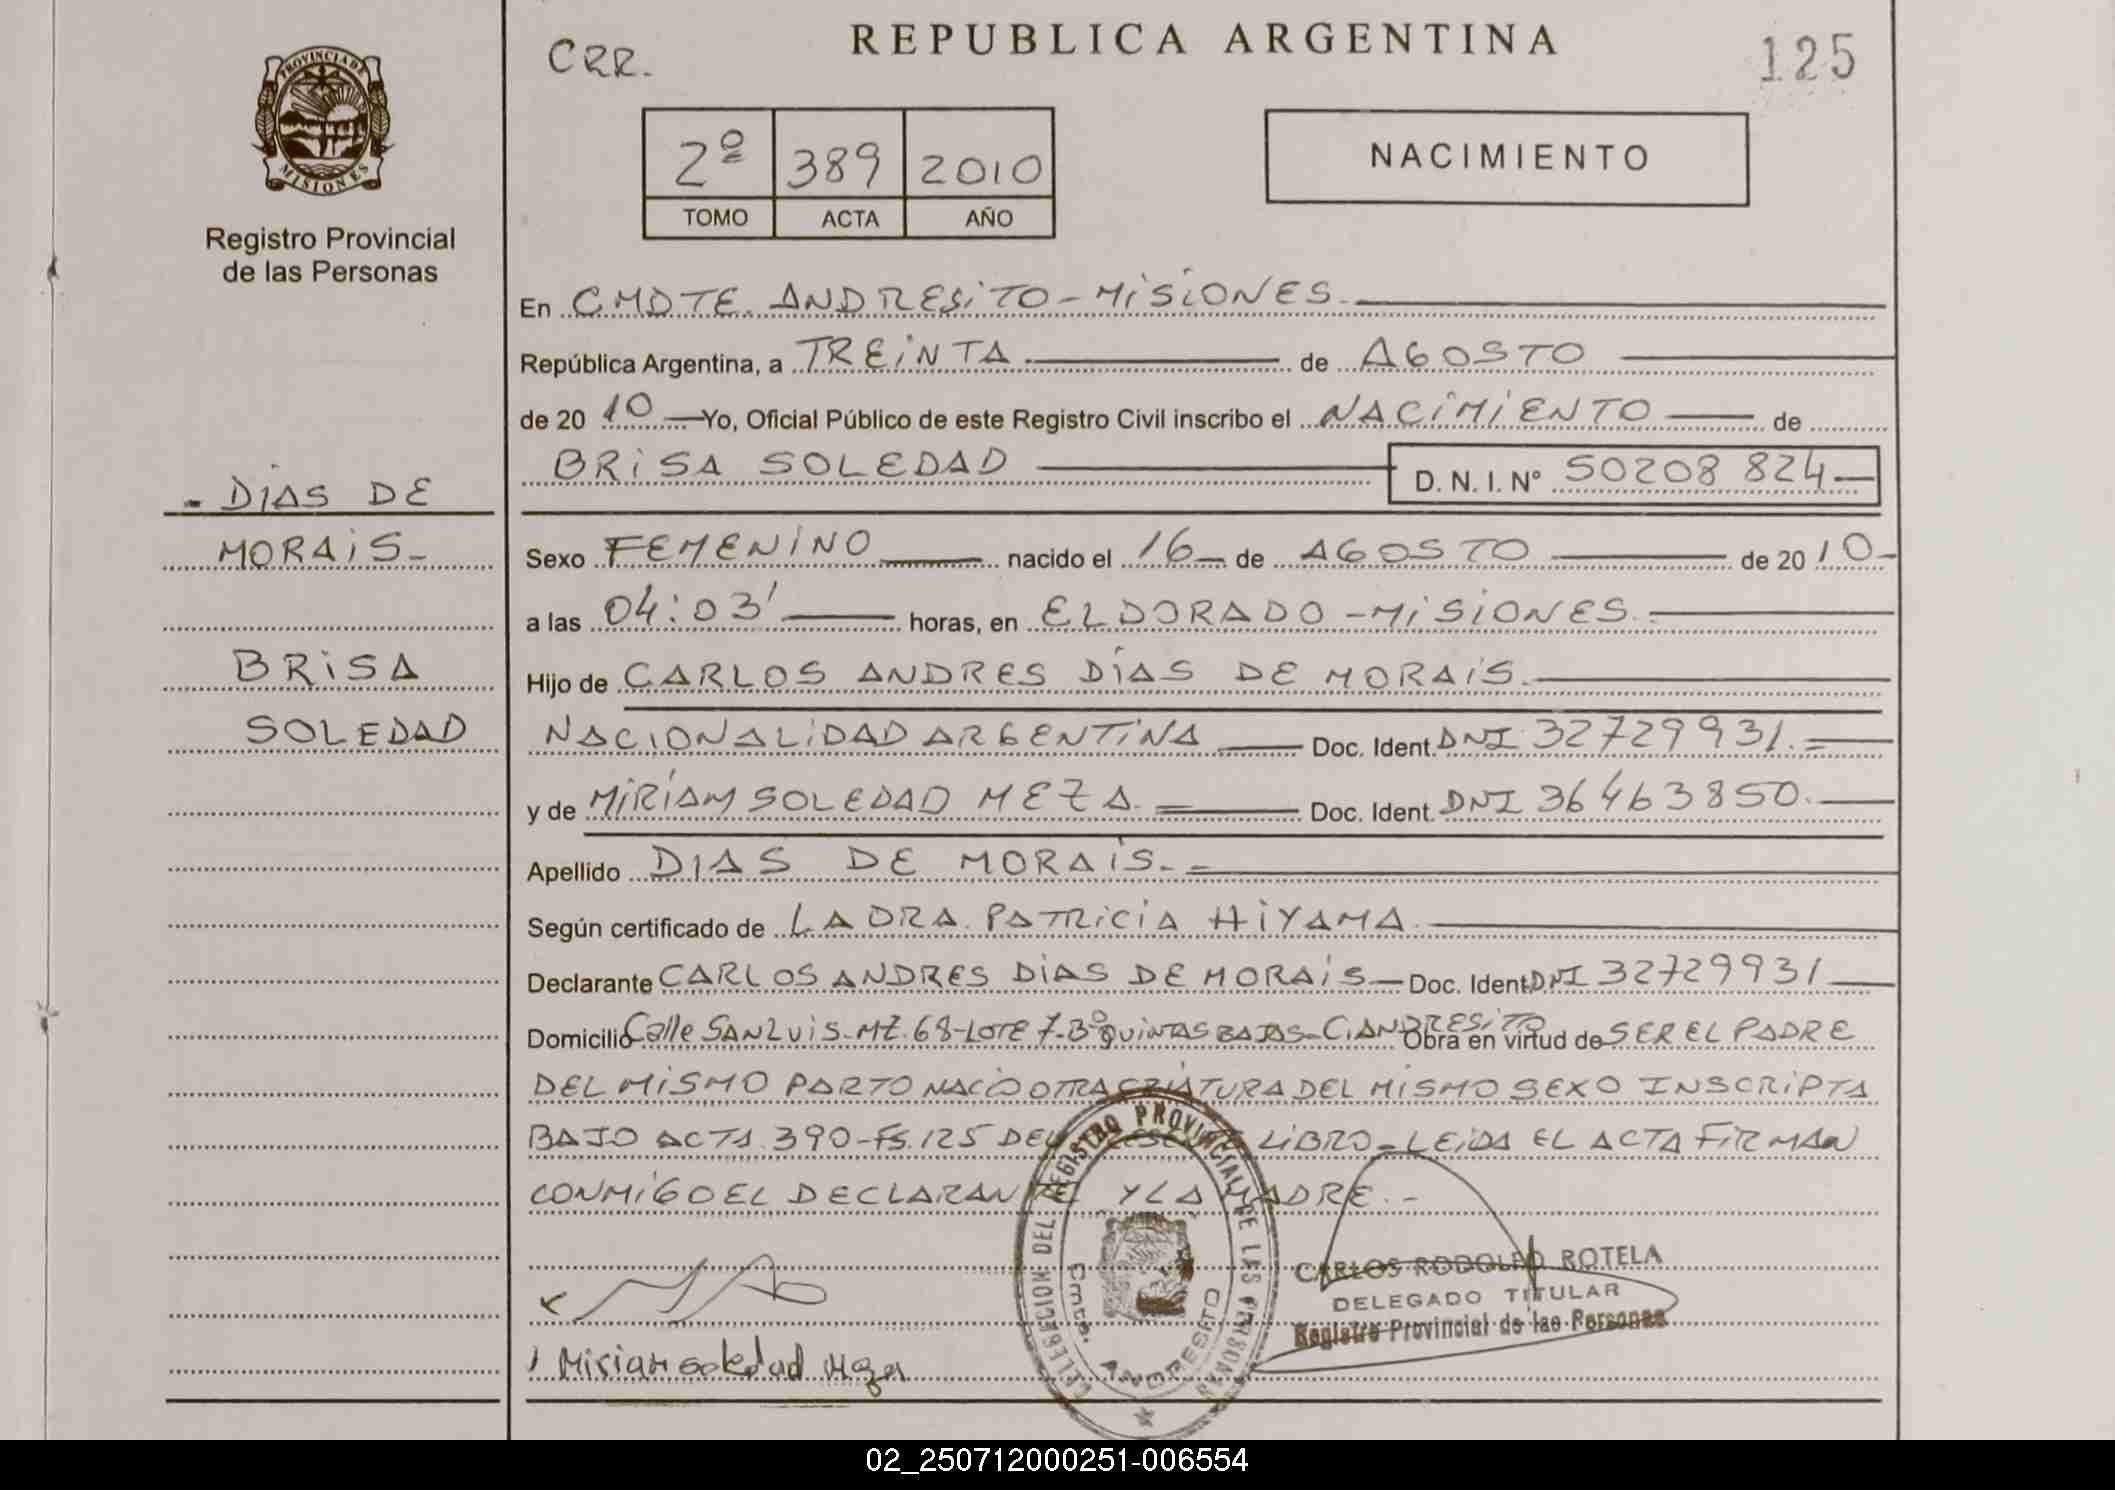 PROVINCIA DE
MISIONES
Registro Provincial
de las Personas
- DIAS DE
MORAIS -
BRISA
SOLEDAD
CRR.
REPUBLICA ARGENTINA
125
2º 389 2010
TOMO ACTA AÑO
NACIMIENTO
En CMDTE. ANDRESITO - MISIONES.
República Argentina, a TREINTA de AGOSTO
de 20 10 Yo, Oficial Público de este Registro Civil inscribo el NACIMIENTO de
BRISA SOLEDAD D. N. I. Nº 50208 824
Sexo FEMENINO nacido el 16 de AGOSTO de 20 10
a las 04:03' horas, en ELDORADO - MISIONES.
Hijo de CARLOS ANDRES DIAS DE MORAIS.
NACIONALIDAD ARGENTINA Doc. Ident. DNI 32729931.
y de MIRIAM SOLEDAD MEZA. Doc. Ident. DNI 36463850.
Apellido DIAS DE MORAIS.
Según certificado de LA DRA. PATRICIA HIYAMA
Declarante CARLOS ANDRES DIAS DE MORAIS Doc. Ident. DNI 32729931
Domicilio Calle SAN LUIS - MZ. 68 - LOTE 7 - Bº QUINTAS BAJAS - C. ANDRESITO Obra en virtud de SER EL PADRE
DEL MISMO PARTO NACIO OTRA CRIATURA DEL MISMO SEXO INSCRIPTA
BAJO ACTA 390 - FS. 125 DEL LIBRO - LEIDA EL ACTA FIRMAN
CONMIGO EL DECLARANTE Y LA MADRE. -
Miriam soledad Meza
DELEGACION DEL REGISTRO PROVINCIAL DE LAS PERSONAS
Cmte. ANDRESITO
CARLOS RODOLFO ROTELA
DELEGADO TITULAR
Registro Provincial de las Personas
02_250712000251-006554